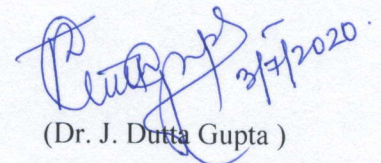 3/7/2020.
(Dr. J. Dutta Gupta )